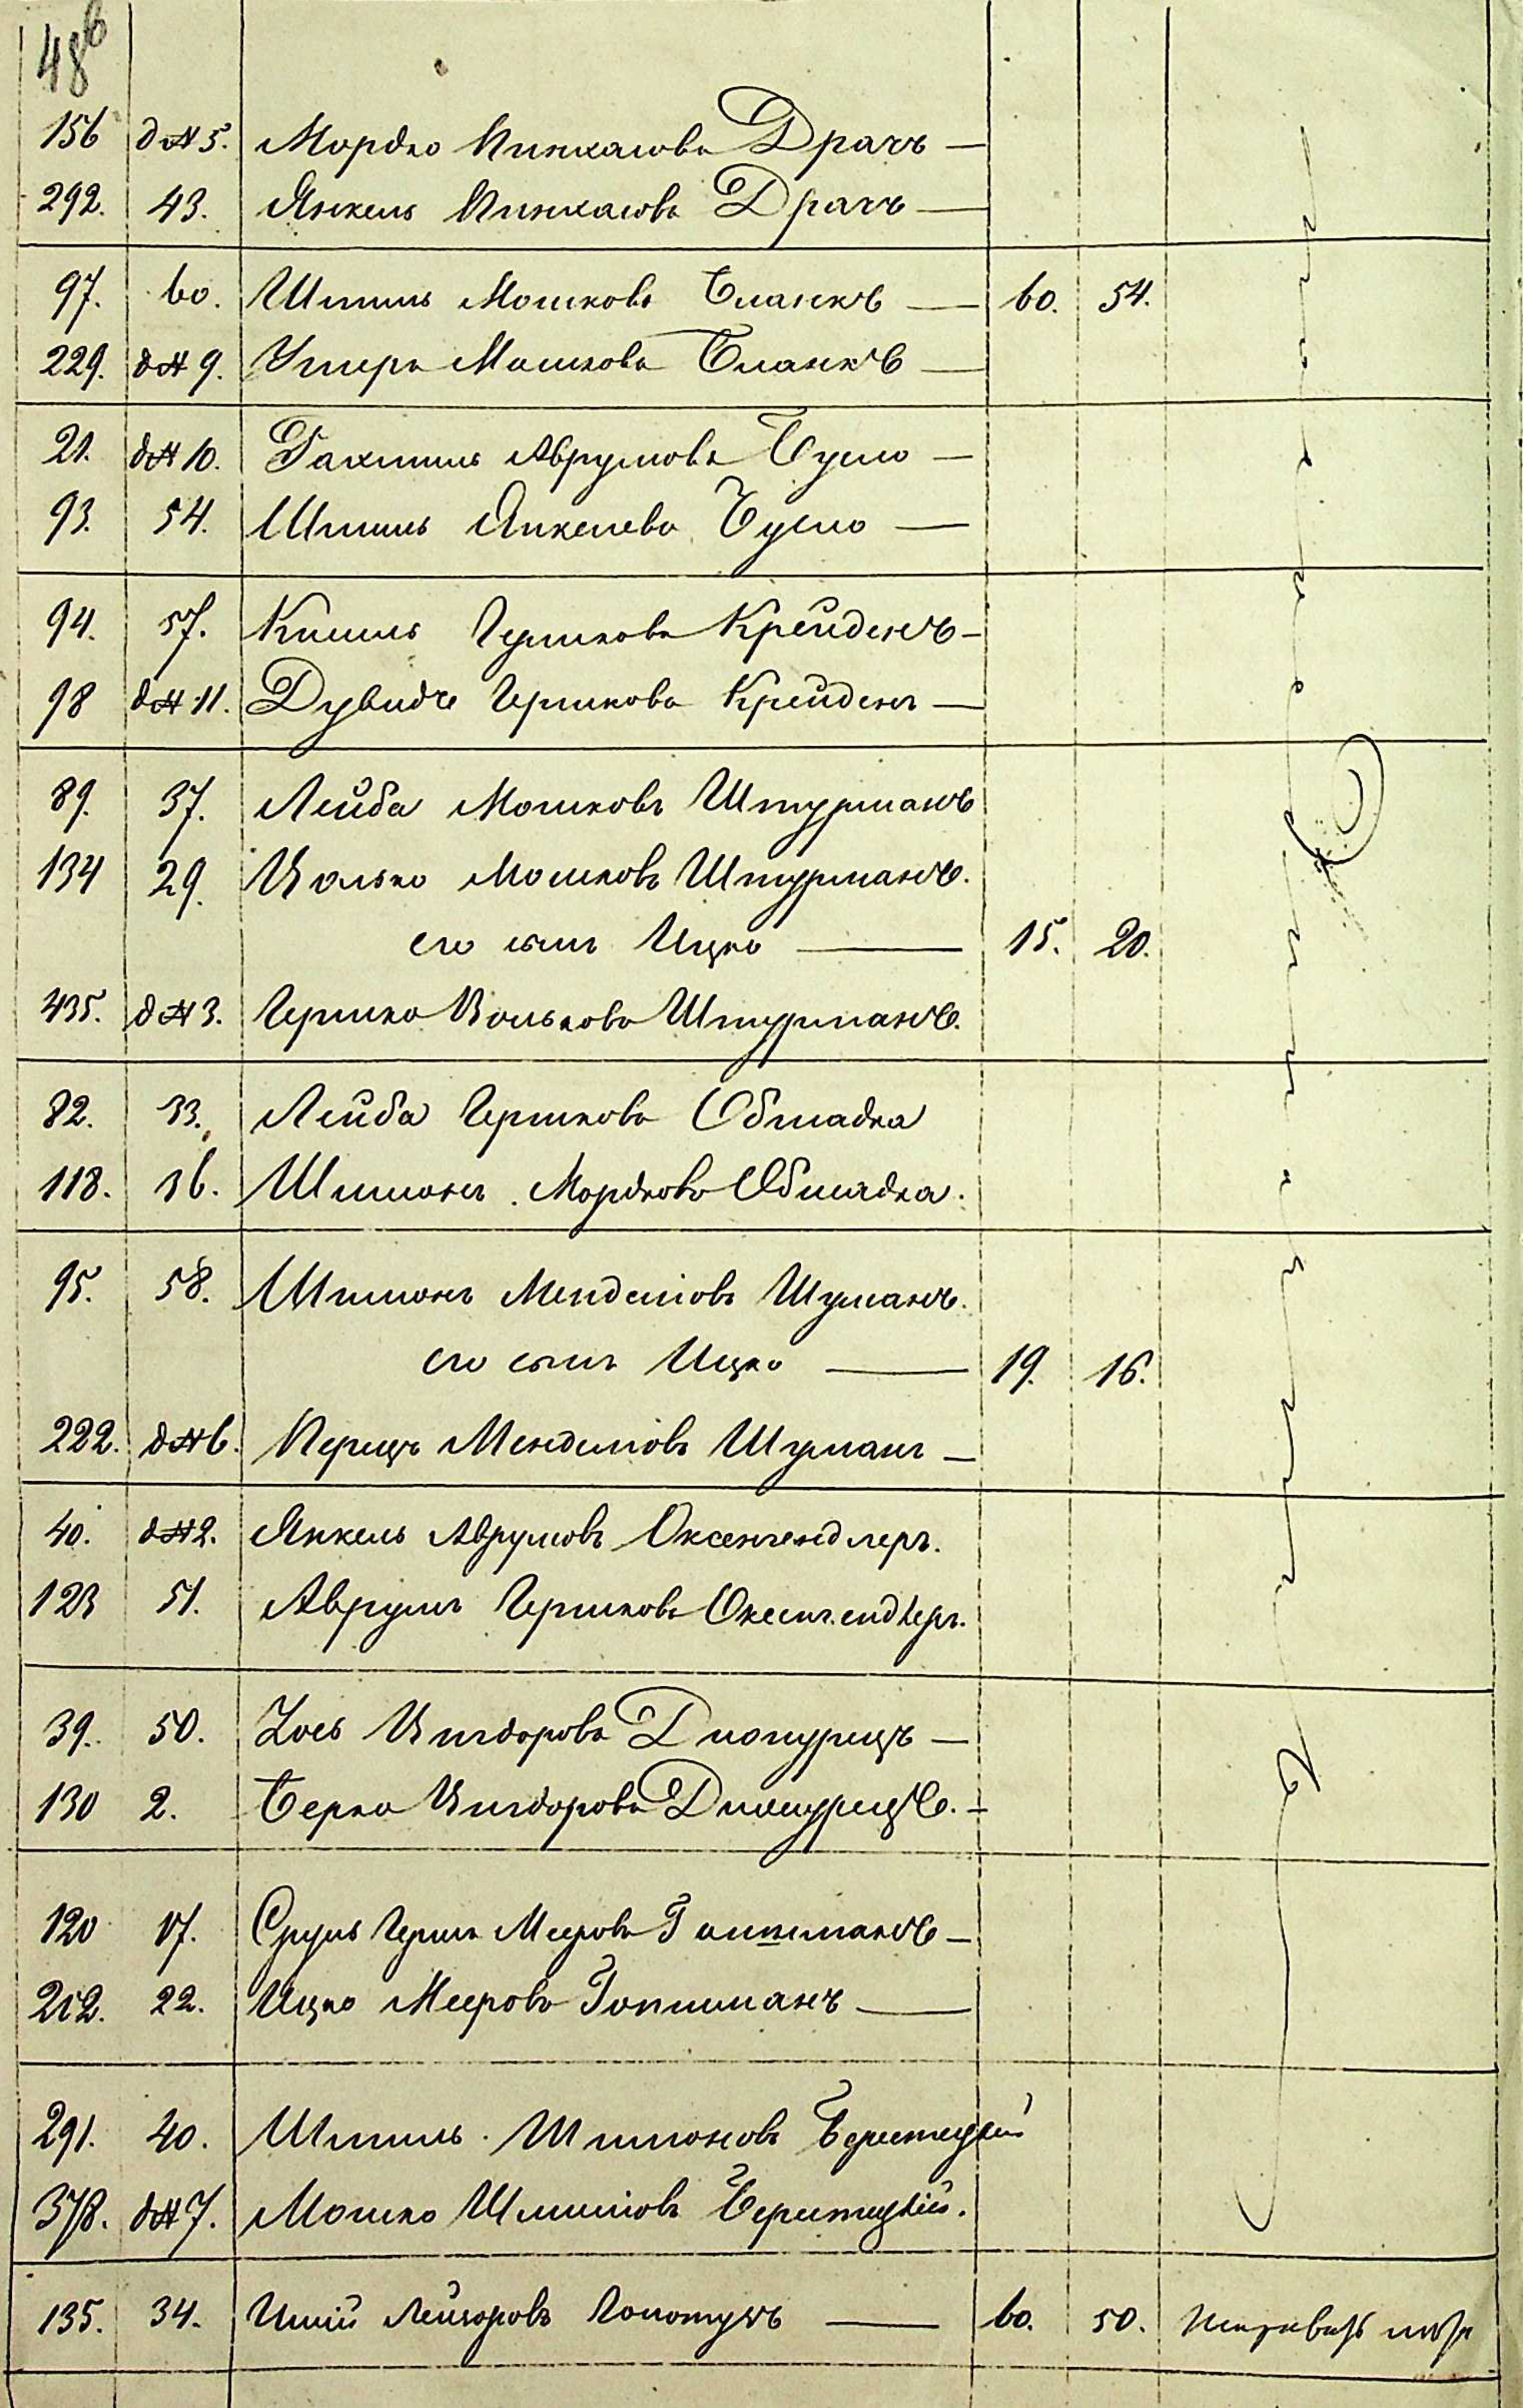 48б
156 д№5. Мордко Пинхасовъ Драчъ —
292. 43. Янкель Пинхасовъ Драчъ —
97. 60. Шмиль Мошковъ Бланкъ — 60. 54.
229. д№9. Ушеръ Мошковъ Бланкъ —
21. д№10. Рахмиль Аврумовъ Бусло —
93. 54. Шмиль Янкелевъ Бусло —
94. 57. Кисиль Гершковъ Крейденъ —
98 д№11. Дувидъ Гершковъ Крейденъ —
89. 37. Лейба Мошковъ Штурманъ
134 29. Волько Мошковъ Штурманъ.
его сынъ Ицко — 15. 20.
435. д№3. Гершко Вольковъ Штурманъ.
82. 33. Лейба Гершковъ Обшадка
118. 36. Шимонъ Мордковъ Обшадка.
95. 58. Шимонъ Менделіовъ Шуманъ.
его сынъ Ицко — 19. 16.
222. д№6. Перецъ Менделіовъ Шуманъ —
40. д№2. Янкель Аврумовъ Оксенгендлеръ.
123 51. Аврумъ Гершковъ Оксенгендлеръ.
39. 50. Іось Вигдоровъ —
130 2. Берко Вигдоровъ
120 17. Сруль Гершъ Мееровъ Гопшманъ —
212. 22. Ицко Мееровъ Гопшманъ —
291. 40. Шмиль Шимоновъ Берестецкій
378. д№7. Мошко Шмиліовъ Берестецкій.
135. 34. Лейзоровъ — 60. 50.